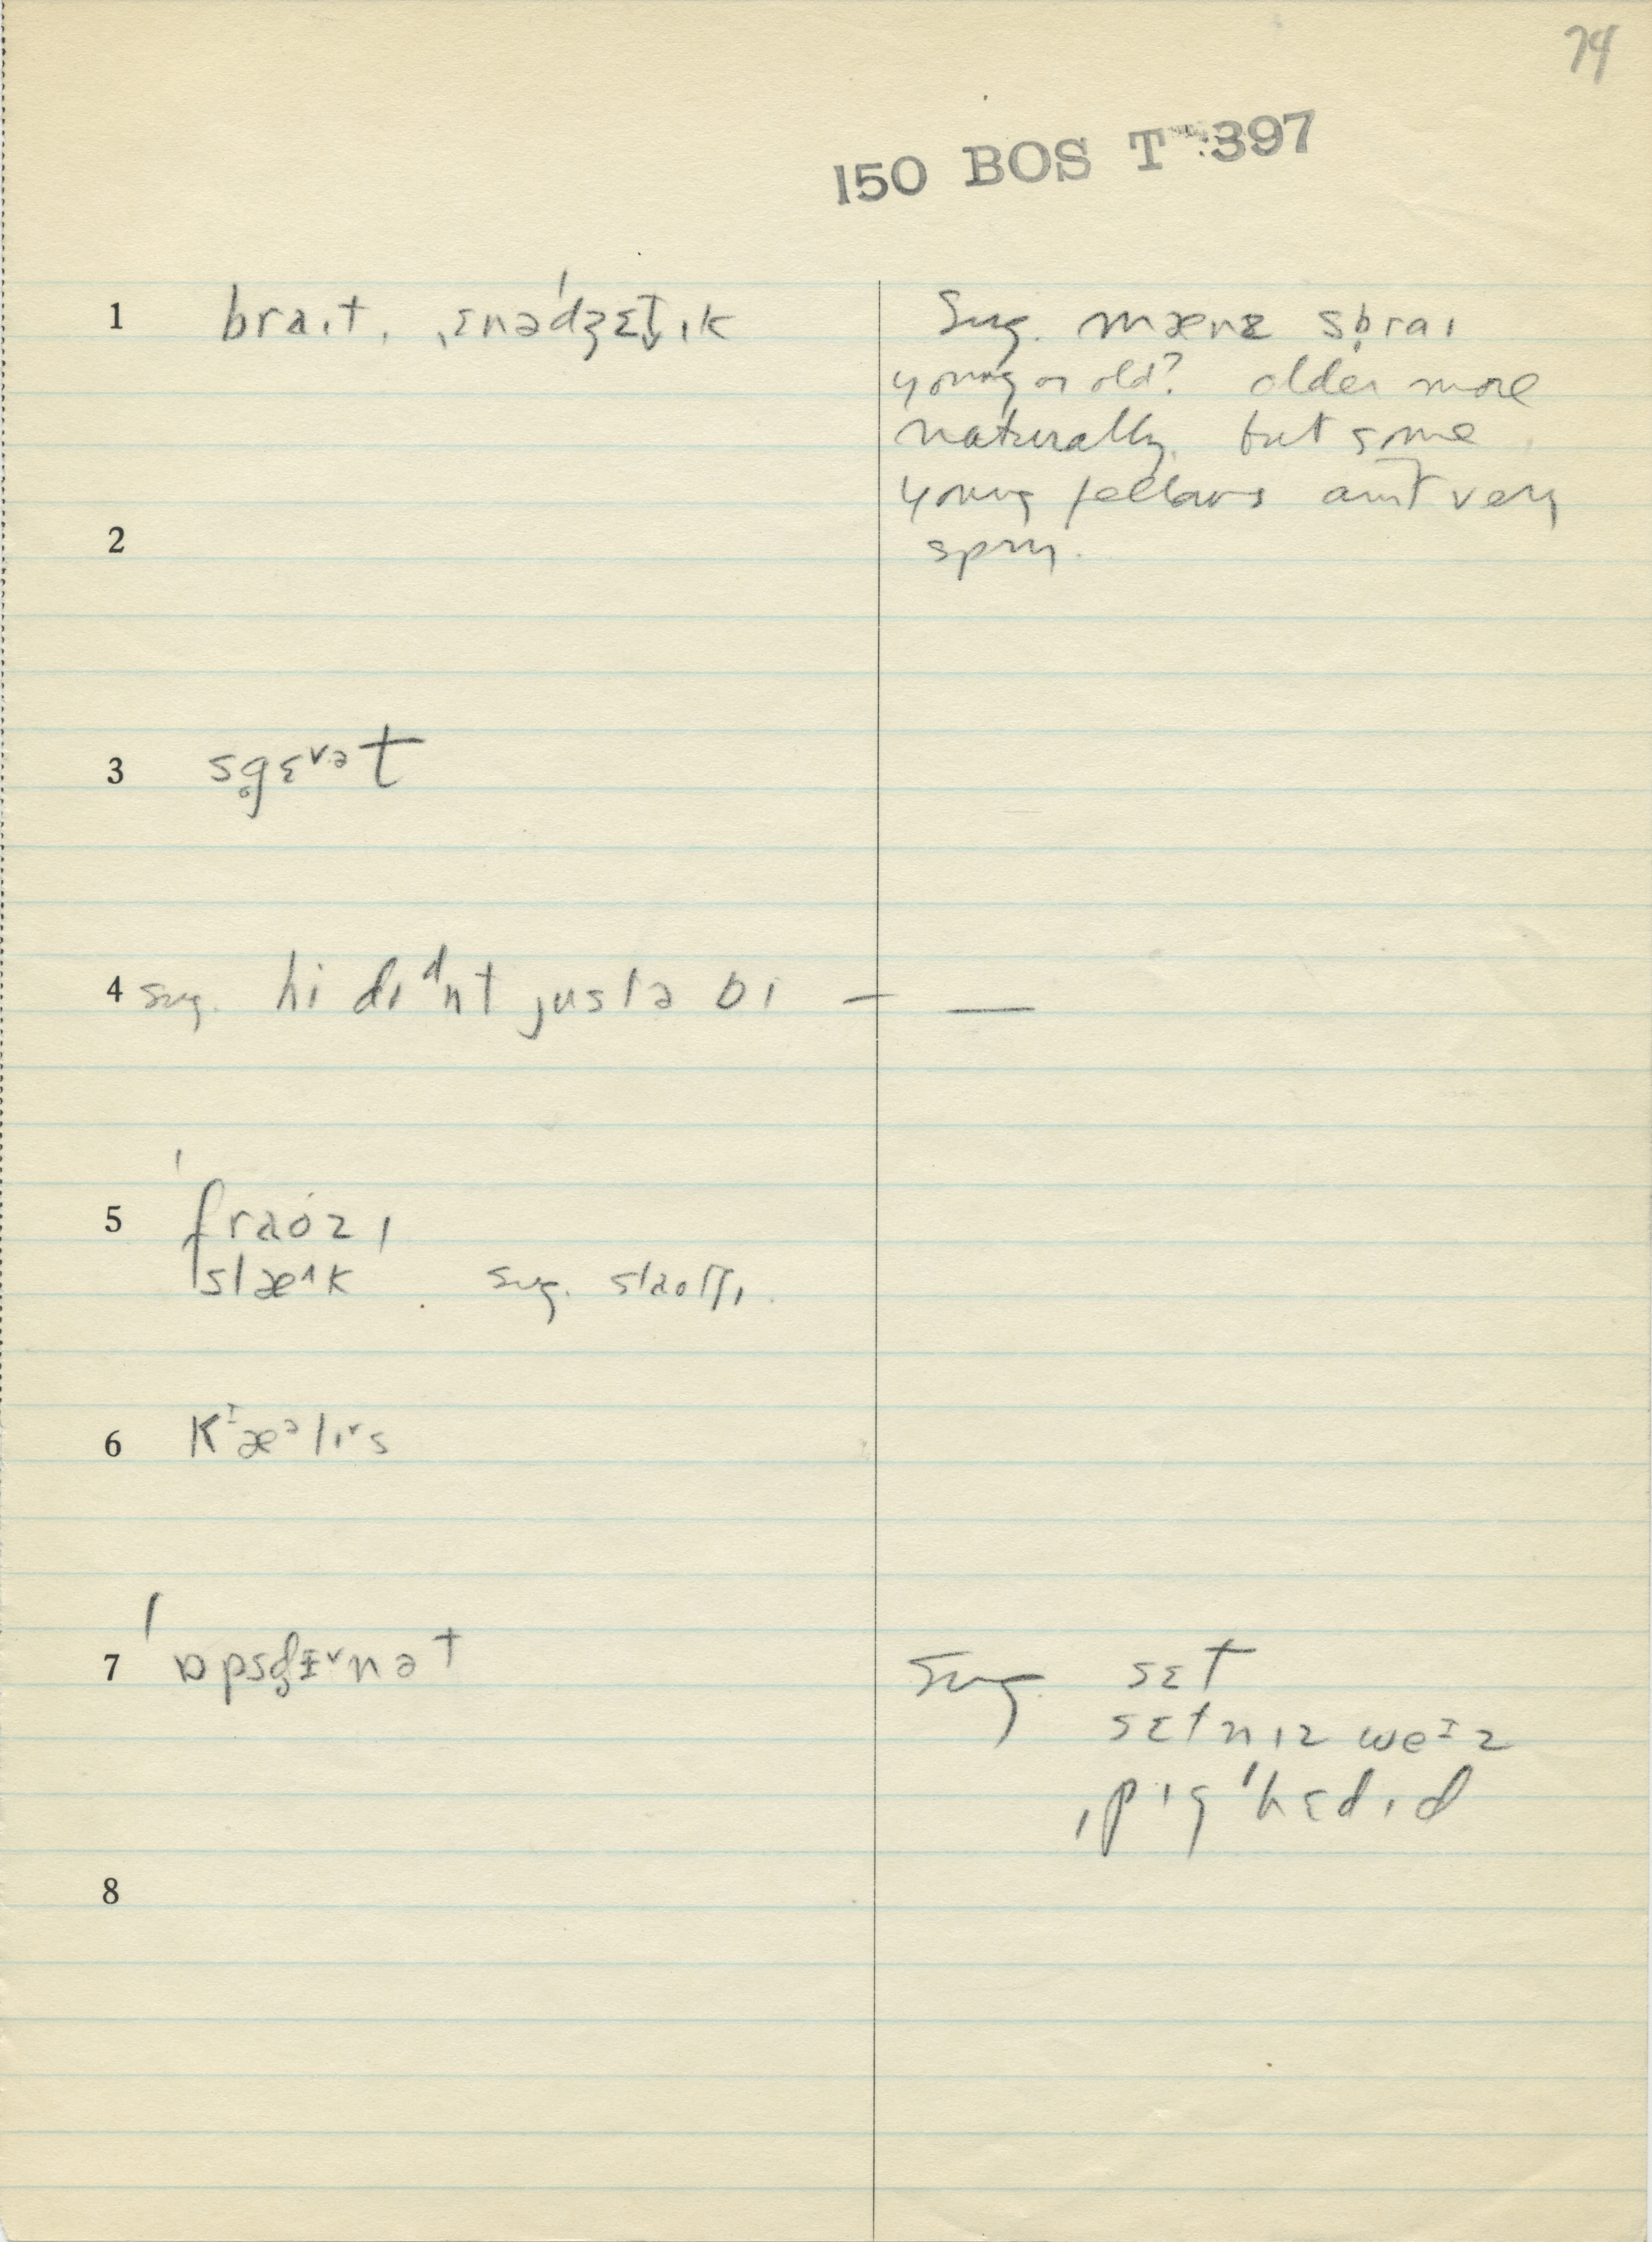 74
150 BOS T 397
1 braɪt. ˌɛnəˈdʒɛt̬ɪk
Sug. mænz sb̥raɪ
young or old? older more
naturally. but some
young fellows ain't very
2
spry.
3 sg̥ɛᵛᵊt
4 sug. hi dɪᵈnt justə bi — —
5 ˈfraʊzɪ
slæ^k sug.
6 Kᶦæᵊlɪᵛs
7 ˈɒpsd̥ɪᵛnət
Sug. sɛt
sɛtnɪz weᶦz
ˌpɪgˈhɛdɪd
8